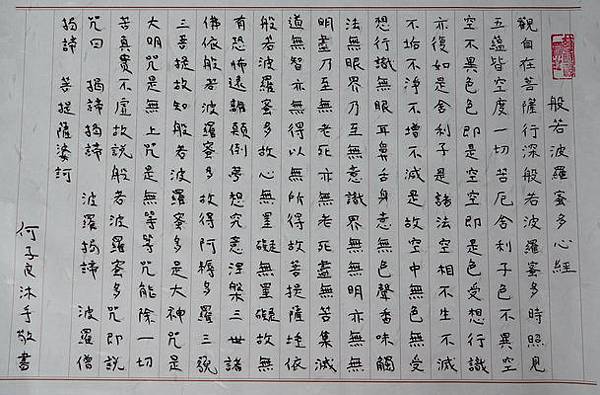 般若波羅蜜多心經
觀自在菩薩行深般若波羅蜜多時照見
五蘊皆空度一切苦厄舍利子色不異空
空不異色色即是空空即是色受想行識
亦復如是舍利子是諸法空相不生不滅
不垢不淨不增不減是故空中無色無受
想行識無眼耳鼻舌身意無色聲香味觸
法無眼界乃至無意識界無無明亦無無
明盡乃至無老死亦無老死盡無苦集滅
道無智亦無得以無所得故菩提薩埵依
般若波羅蜜多故心無罣礙無罣礙故無
有恐怖遠離顛倒夢想究竟涅槃三世諸
佛依般若波羅蜜多故得阿耨多羅三藐
三菩提故知般若波羅蜜多是大神咒是
大明咒是無上咒是無等等咒能除一切
苦真實不虛故說般若波羅蜜多咒即說
咒曰 揭諦揭諦 波羅揭諦 波羅僧
揭諦 菩提薩婆訶
何子良沐手敬書